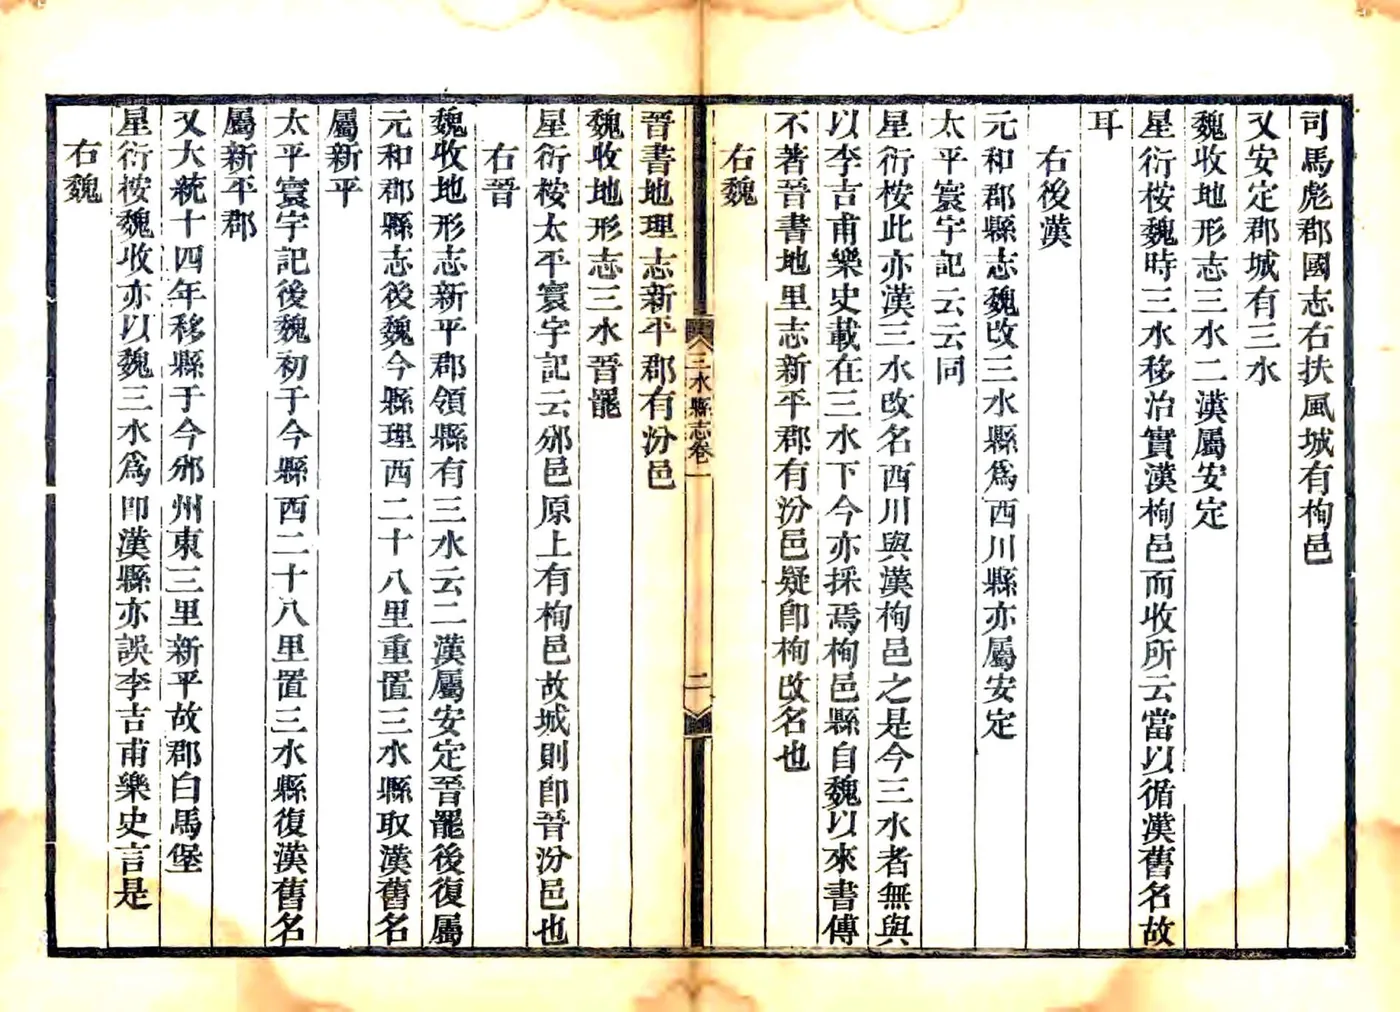 司馬彪郡國志右扶風城有栒邑
又安定郡城有三水
魏收地形志三水二漢屬安定
星衍桉魏時三水移治實漢栒邑而收所云當以循漢舊名故
耳
右後漢
元和郡縣志魏改三水縣爲西川縣亦屬安定
太平寰宇記云云同
星衍桉此亦漢三水改名西川與漢栒邑之是今三水者無與
以李吉甫樂史載在三水下今亦採焉栒邑縣自魏以來書傳
不著晉書地里志新平郡有汾邑疑卽栒改名也
右魏
三水縣志卷一
二
晉書地理志新平郡有汾邑
魏收地形志三水晉罷
星衍桉太平寰宇記云邠邑原上有栒邑故城則卽晉汾邑也
右晉
魏收地形志新平郡領縣有三水云二漢屬安定晉罷後復屬
元和郡縣志後魏今縣理西二十八里重置三水縣取漢舊名
屬新平
太平寰宇記後魏初于今縣西二十八里置三水縣復漢舊名
屬新平郡
又大統十四年移縣于今邠州東三里新平故郡白馬堡
星衍桉魏收亦以魏三水爲卽漢縣亦誤李吉甫樂史言是
右魏